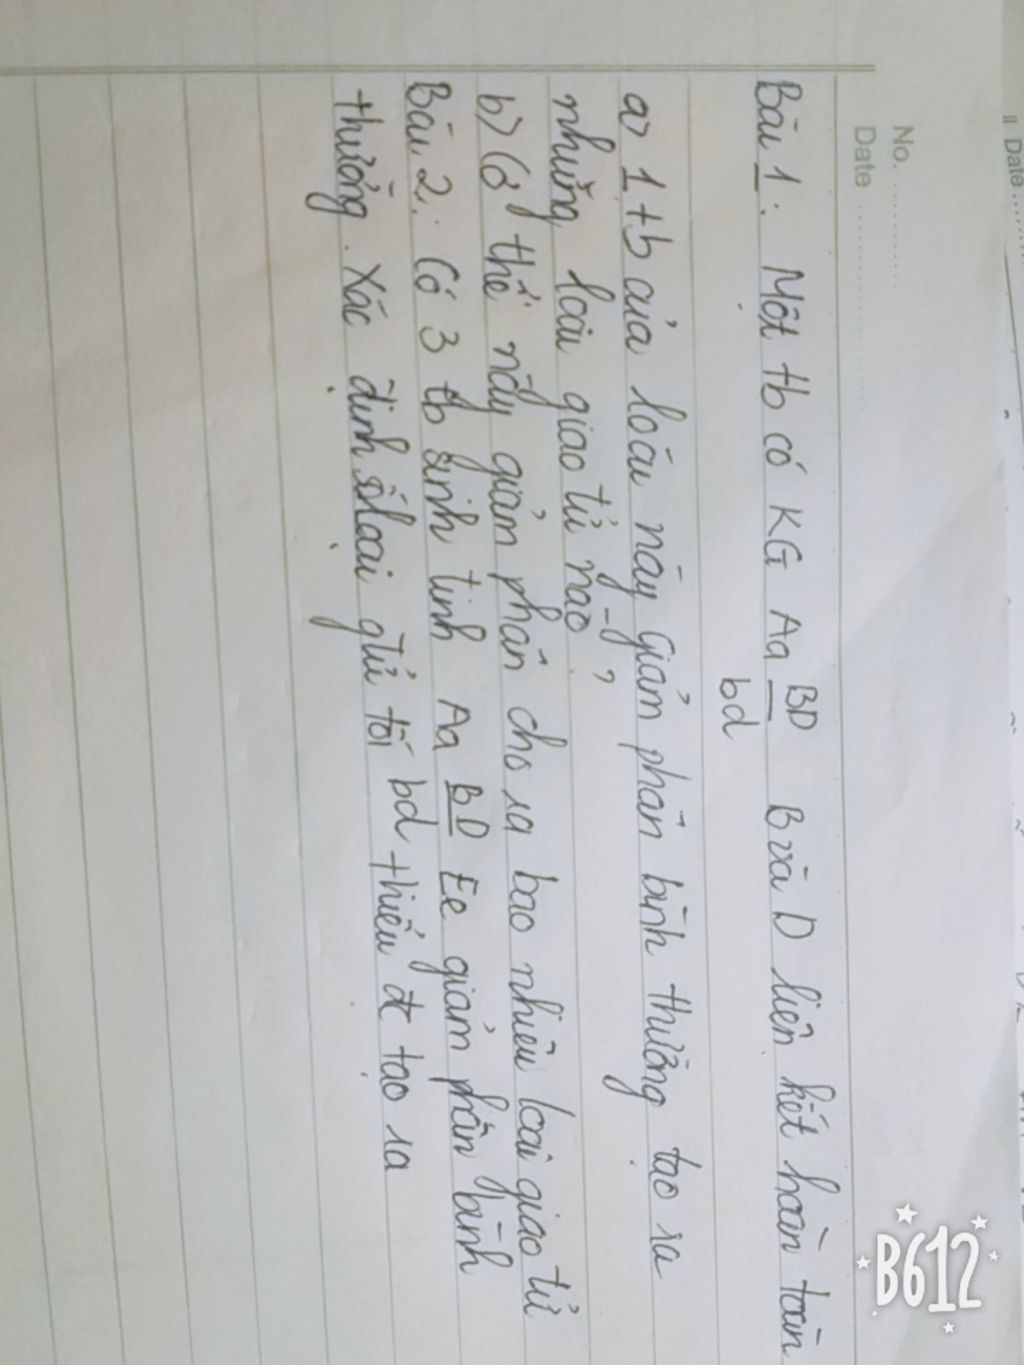 No. ............
Date ............
|| Date .....
Bài 1: Một tb có KG Aa BD B và D liên kết hoàn toàn
bd
a> 1 tb của loài này giảm phân bình thường tạo ra
những loại giao tử nào?
b) Cơ thể này giảm phân cho ra bao nhiêu loại giao tử
Bài 2: Có 3 tb sinh tinh Aa BD Ee giảm phân bình
thường. Xác định số loại gtử tối bd thiểu đc tạo ra
B612